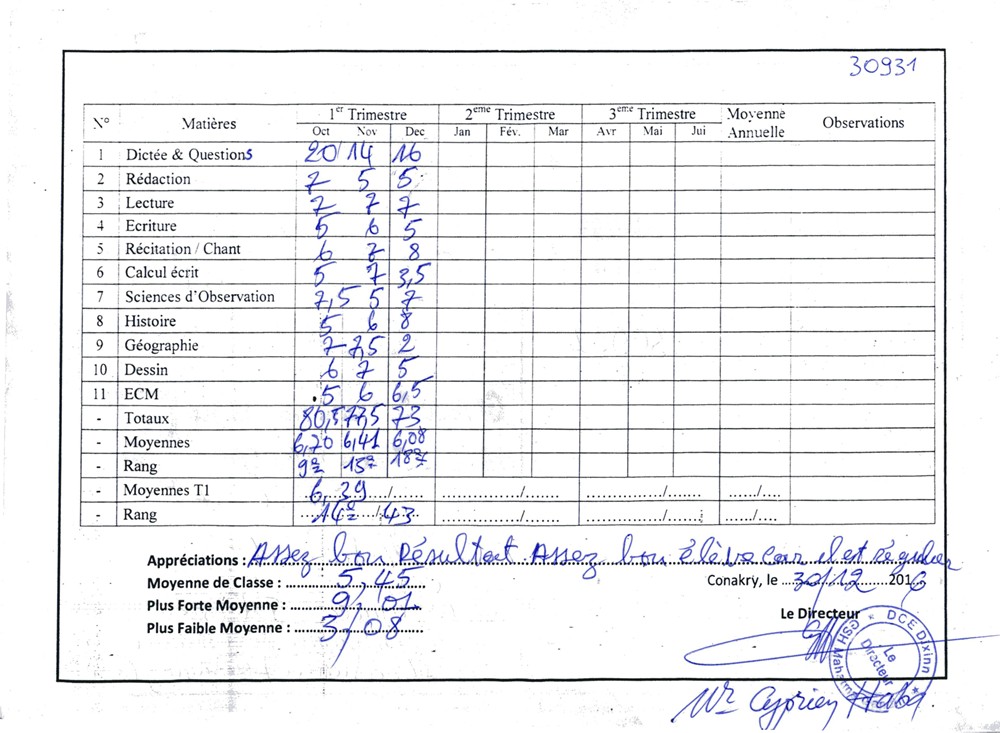 30931
N° Matières 1er Trimestre 2eme Trimestre 3eme Trimestre Moyenne Annuelle Observations
Oct Nov Dec Jan Fév. Mar Avr Mai Jui
1 Dictée & Questions 20 14 16
2 Rédaction 7 5 5
3 Lecture 7 7 7
4 Ecriture 5 6 5
5 Récitation / Chant 6 7 8
6 Calcul écrit 5 7 3,5
7 Sciences d'Observation 7,5 5 7
8 Histoire 5 6 8
9 Géographie 7 7,5 2
10 Dessin 6 7 5
11 ECM 5 6 6,5
- Totaux 80,5 77,5 73
- Moyennes 6,70 6,41 6,08
- Rang 9e 15e 18e
- Moyennes T1 6,39 ..../...... ............../....... ............../....... ....../....
- Rang 14e/43 ............../....... ............../....... ....../....
Appréciations : Assez bon Résultat Assez bon élève car il est régulier
Moyenne de Classe : 5,45
Conakry, le 30/12 2016
Plus Forte Moyenne : 9,01
Le Directeur
Plus Faible Moyenne : 3,08
DCE Dixinn
GSH
Le Directeur
Mr Cyprien